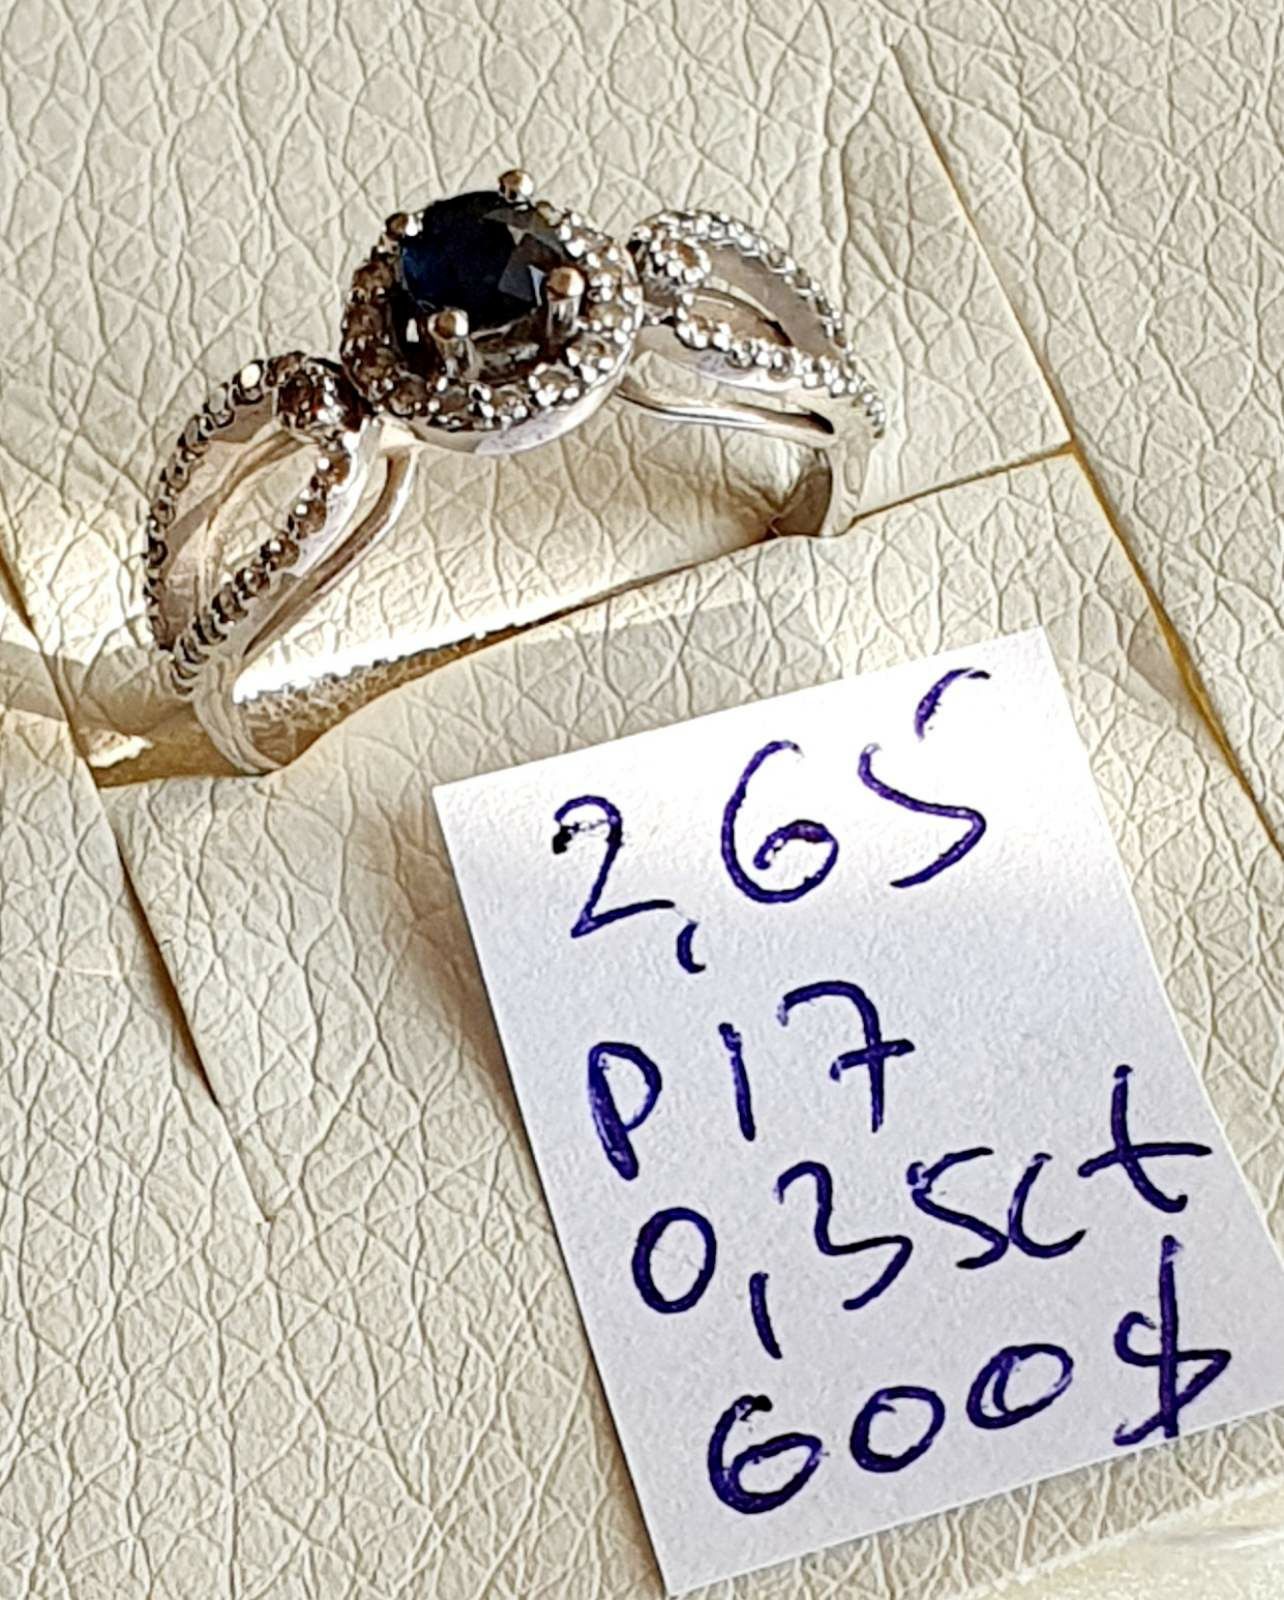 2,65
р 17
0,35ct
600$